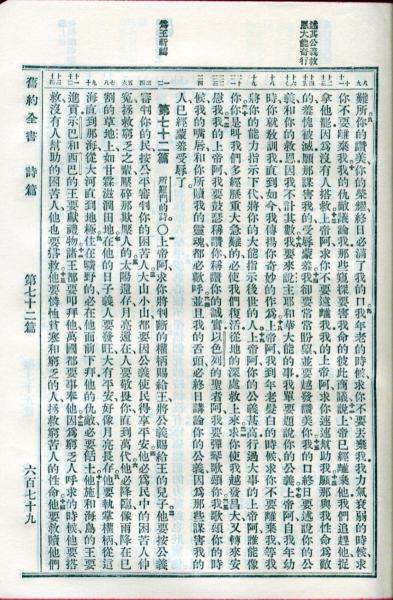 述其公義救
恩大能奇行
難所你的讚美你的榮耀終日必滿了我的口我年老的時候求你不要丟棄我我力氣衰弱的時候求
你不要離棄我我的仇敵議論我那些窺探要害我命的彼此商議說上帝已經離棄他我們追趕他捉
拿他罷因爲沒有人搭救上帝求你不要遠離我我的上帝求你速速幫助我願那與我性命爲敵
的羞愧被滅願那謀害我的受辱蒙羞我卻要常常盼望並要越發讚美你我的口終日要述說你的公
義和你的救恩因我不計其數我要來說主耶和華大能的事我單要題說你的公義上帝阿自我年幼
時你就教訓我直到如今我傳揚你奇妙的作爲上帝阿我到年老髮白的時候求你不要離棄我等我
將你的能力指示下代將你的大能指示後世的人上帝阿你的公義甚高行過大事的上帝阿誰能像
你你是叫我們多經歷重大急難的必使我們復活從地的深處救上來求你使我越發昌大又轉來安
慰我的上帝阿我要鼓瑟稱讚你稱讚你的誠實以色列的聖者阿我要彈琴歌頌你我歌頌你的時
候我的嘴唇和你所贖我的靈魂都必歡呼並且我的舌頭必終日講論你的公義因爲那些謀害我的
人已經蒙羞受辱了
爲王祈禱
第七十二篇 所羅門的詩〇上帝求你將判斷的權柄賜給王將公義賜給王的兒子他要按公義
審判你的民按公平審判你的困苦人大山小山都要因公義使民得享平安他必爲民中的困苦人伸
冤拯救窮乏之輩壓碎那欺壓人的太陽還存月亮還在人要敬畏你直到萬代他必降臨像雨降在已
割的草地上如甘霖滋潤田地在他的日子義人要發旺大有平安好像月亮長存他要執掌權柄從這
海直到那海從大河直到地極住在曠野的必在他面前下拜他的仇敵必要餂土他施和海島的王要
進貢示巴和西巴的王要獻禮物諸王都要叩拜他萬國都要事奉他因爲窮乏人呼求的時候他要搭
救沒有人幫助的困苦人他也要搭救他要憐恤貧寒和窮乏的人拯救窮苦人的性命他要救贖他們
舊約全書 詩篇 第七十二篇 六百七十九